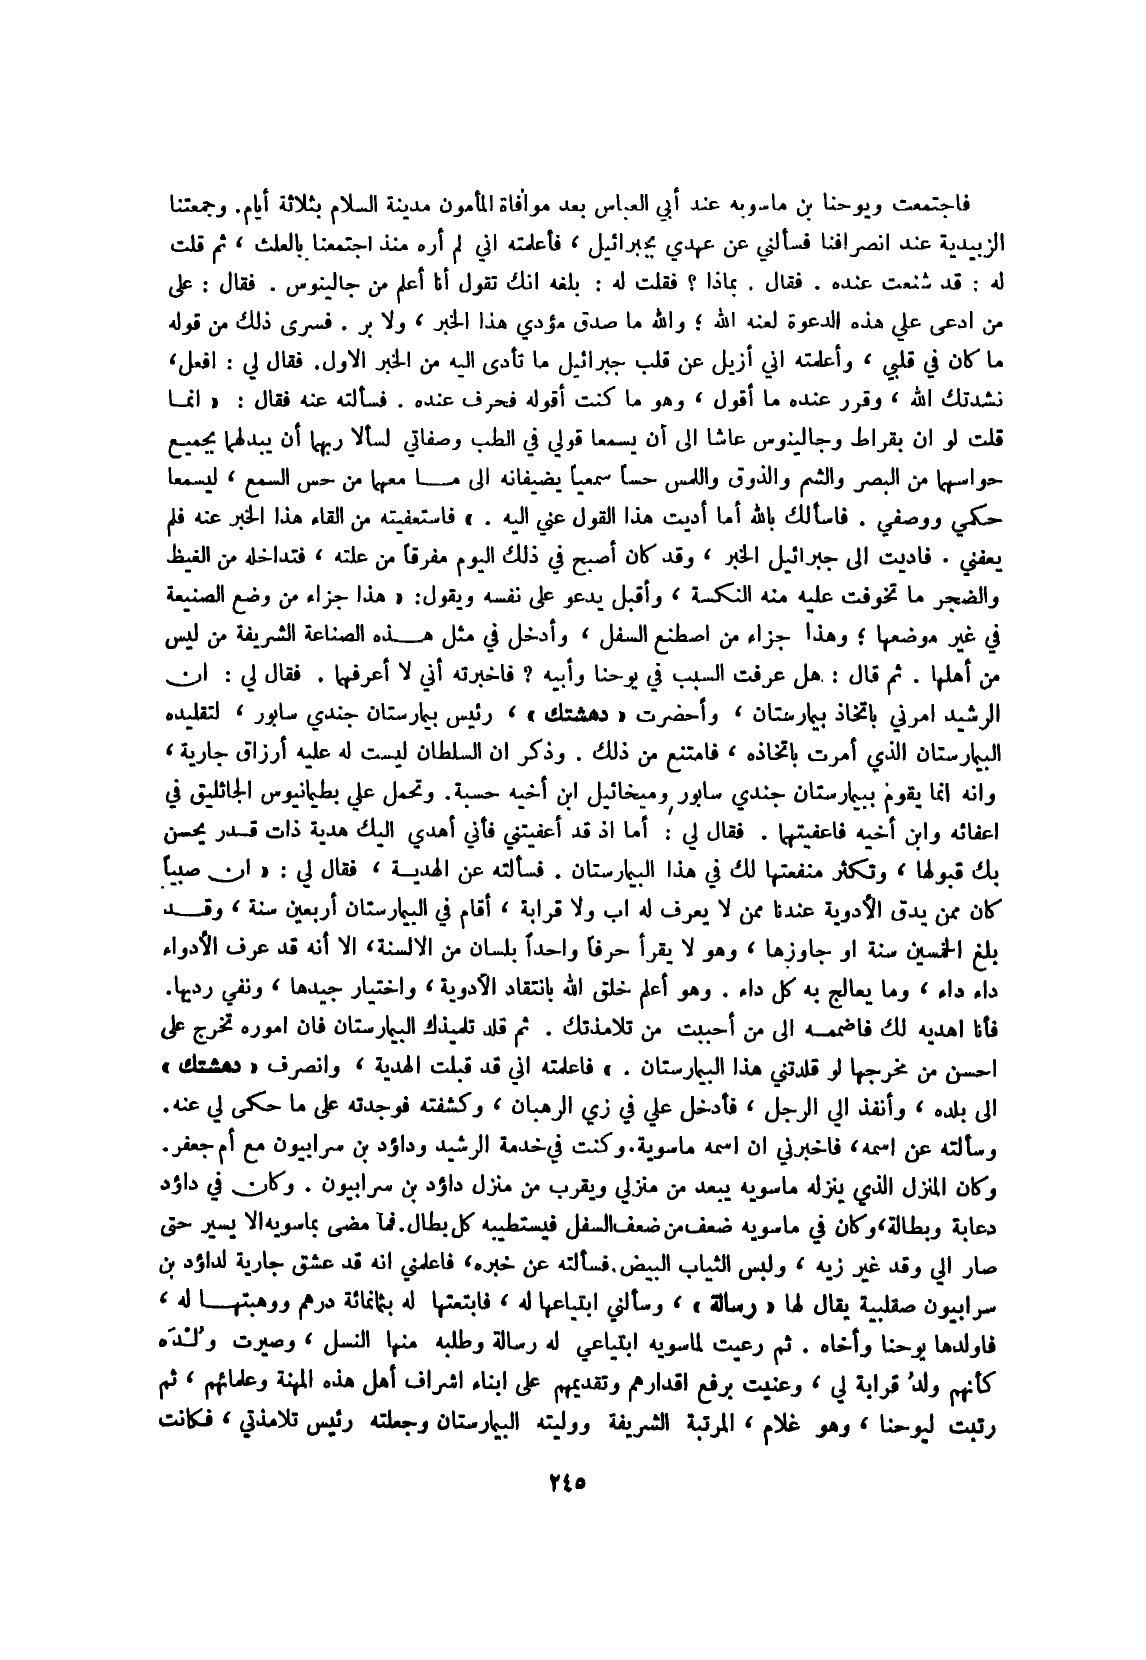 فاجتمعت ويوحنا بن ماسويه عند أبي العباس بعد موافاة المأمون مدينة السلام بثلاثة أيام. وجمعتنا
الزبيدية عند انصرافنا فسألني عن عهدي بجبرائيل ، فأعلمته اني لم أره منذ اجتمعنا بالعلث ، ثم قلت
له : قد شنعت عنده . فقال . بماذا ؟ فقلت له : بلغه انك تقول أنا أعلم من جالينوس . فقال : على
من ادعى علي هذه الدعوة لعنه الله ؛ والله ما صدق مؤدي هذا الخبر ، ولا بر . فسرى ذلك من قوله
ما كان في قلبي ، وأعلمته اني أزيل عن قلب جبرائيل ما تأدى اليه من الخبر الاول. فقال لي : افعل،
نشدتك الله ، وقرر عنده ما أقول ، وهو ما كنت أقوله فحرف عنده . فسألته عنه فقال : « انما
قلت لو ان بقراط وجالينوس عاشا الى أن يسمعا قولي في الطب وصفاتي لسألا ربهما أن يبدلهما بجميع
حواسهما من البصر والشم والذوق واللمس حساً سمعياً يضيفانه الى ما معهما من حس السمع ، ليسمعا
حكمي ووصفي . فاسألك بالله أما أديت هذا القول عني اليه . » فاستعفيته من القاء هذا الخبر عنه فلم
يعفني . فاديت الى جبرائيل الخبر ، وقد كان أصبح في ذلك اليوم مفرقاً من علته ، فتداخله من الغيظ
والضجر ما تخوفت عليه منه النكسة ، وأقبل يدعو على نفسه ويقول: « هذا جزاء من وضع الصنيعة
في غير موضعها ؛ وهذا جزاء من اصطنع السفل ، وأدخل في مثل هذه الصناعة الشريفة من ليس
من أهلها . ثم قال : هل عرفت السبب في يوحنا وأبيه ? فاخبرته أني لا أعرفها . فقال لي : ان
الرشيد امرني باتخاذ بيمارستان ، وأحضرت « دهشتك » ، رئيس بيمارستان جندي سابور ، لتقليده
البيمارستان الذي أمرت باتخاذه ، فامتنع من ذلك . وذكر ان السلطان ليست له عليه أرزاق جارية ،
وانه انما يقوم ببيمارستان جندي سابور وميخائيل ابن أخيه حسبة. وتحمل علي بطيمانيوس الجاثليق في
اعفائه وابن أخيه فاعفيتهما . فقال لي : أما اذ قد أعفيتني فأني أهدي اليك هدية ذات قدر يحسن
بك قبولها ، وتكثر منفعتها لك في هذا البيمارستان . فسألته عن الهدية ، فقال لي : « ان صبياً
كان ممن يدق الأدوية عندنا ممن لا يعرف له اب ولا قرابة ، أقام في البيمارستان أربعين سنة ، وقد
بلغ الخمسين سنة او جاوزها ، وهو لا يقرأ حرفاً واحداً بلسان من الالسنة، الا أنه قد عرف الأدواء
داء داء ، وما يعالج به كل داء . وهو أعلم خلق الله بانتقاد الأدوية ، واختيار جيدها ، ونفي رديها.
فأنا اهديه لك فاضممه الى من أحببت من تلامذتك . ثم قلد تلميذك البيمارستان فان اموره تخرج على
احسن من مخرجها لو قلدتني هذا البيمارستان . » فاعلمته اني قد قبلت الهدية ، وانصرف « دهشتك »
الى بلده ، وأنفذ الي الرجل ، فأدخل علي في زي الرهبان ، وكشفته فوجدته على ما حكى لي عنه.
وسألته عن اسمه، فاخبرني ان اسمه ماسوية.وكنت في خدمة الرشيد وداؤد بن سرابيون مع أم جعفر.
وكان المنزل الذي ينزله ماسويه يبعد من منزلي ويقرب من منزل داؤد بن سرابيون . وكان في داؤد
دعابة وبطالة،وكان في ماسويه ضعف من ضعف السفل فيستطيبه كل بطال.فما مضى بماسويه الا يسير حتى
صار الي وقد غير زيه ، ولبس الثياب البيض.فسألته عن خبره، فاعلمني انه قد عشق جارية لداؤد بن
سرابيون صقلبية يقال لها « رسالة » ، وسألني ابتياعها له ، فابتعتها له بثمانمائة درهم ووهبتها له ،
فاولدها يوحنا وأخاه . ثم رعيت لماسويه ابتياعي له رسالة وطلبه منها النسل ، وصيرت وُلْدَه
كأنهم ولدُ قرابة لي ، وعنيت برفع اقدارهم وتقديمهم على ابناء اشراف أهل هذه المهنة وعلمائهم ، ثم
رتبت ليوحنا ، وهو غلام ، المرتبة الشريفة ووليته البيمارستان وجعلته رئيس تلامذتي ، فكانت
٢٤٥